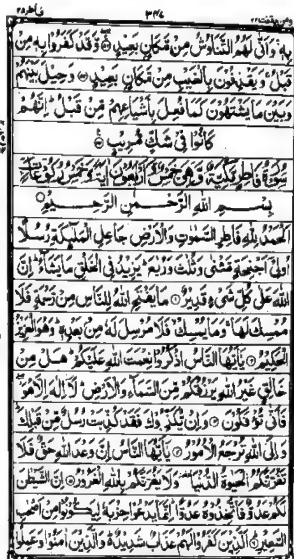 ومن يقنت ٢٢ ٣٤٧ فاطر ٣٥
بِهٖ وَاَنّٰى لَهُمُ التَّنَاوُشُ مِنْ مَّكَانٍۭ بَعِيْدٍ ۞ وَّقَدْ كَفَرُوْا بِهٖ مِنْ
قَبْلُ وَيَقْذِفُوْنَ بِالْغَيْبِ مِنْ مَّكَانٍۭ بَعِيْدٍ ۞ وَحِيْلَ بَيْنَهُمْ
وَبَيْنَ مَا يَشْتَهُوْنَ كَمَا فُعِلَ بِاَشْيَاعِهِمْ مِّنْ قَبْلُ اِنَّهُمْ
كَانُوْا فِيْ شَكٍّ مُّرِيْبٍ ۞
سُوْرَةُ فَاطِرٍ مَّكِّيَّةٌ وَّهِيَ خَمْسٌ وَّاَرْبَعُوْنَ اٰيَةً وَّخَمْسُ رُكُوْعَاتٍ
بِسْمِ اللهِ الرَّحْمٰنِ الرَّحِيْمِ ۞
اَلْحَمْدُ لِلّٰهِ فَاطِرِ السَّمٰوٰتِ وَالْاَرْضِ جَاعِلِ الْمَلٰٓئِكَةِ رُسُلًا
اُولِيْٓ اَجْنِحَةٍ مَّثْنٰى وَثُلٰثَ وَرُبٰعَ يَزِيْدُ فِي الْخَلْقِ مَا يَشَآءُ اِنَّ
اللهَ عَلٰى كُلِّ شَيْءٍ قَدِيْرٌ ۞ مَا يَفْتَحِ اللهُ لِلنَّاسِ مِنْ رَّحْمَةٍ فَلَا
مُمْسِكَ لَهَا وَمَا يُمْسِكْ فَلَا مُرْسِلَ لَهٗ مِنْۢ بَعْدِهٖ وَهُوَ الْعَزِيْزُ
الْحَكِيْمُ ۞ يٰٓاَيُّهَا النَّاسُ اذْكُرُوْا نِعْمَتَ اللهِ عَلَيْكُمْ هَلْ مِنْ
خَالِقٍ غَيْرُ اللهِ يَرْزُقُكُمْ مِّنَ السَّمَآءِ وَالْاَرْضِ لَآ اِلٰهَ اِلَّا هُوَ
فَاَنّٰى تُؤْفَكُوْنَ ۞ وَاِنْ يُّكَذِّبُوْكَ فَقَدْ كُذِّبَتْ رُسُلٌ مِّنْ قَبْلِكَ
وَاِلَى اللهِ تُرْجَعُ الْاُمُوْرُ ۞ يٰٓاَيُّهَا النَّاسُ اِنَّ وَعْدَ اللهِ حَقٌّ فَلَا
تَغُرَّنَّكُمُ الْحَيٰوةُ الدُّنْيَا وَلَا يَغُرَّنَّكُمْ بِاللهِ الْغَرُوْرُ ۞ اِنَّ الشَّيْطٰنَ
لَكُمْ عَدُوٌّ فَاتَّخِذُوْهُ عَدُوًّا اِنَّمَا يَدْعُوْا حِزْبَهٗ لِيَكُوْنُوْا مِنْ اَصْحٰبِ
السَّعِيْرِ ۞ اَلَّذِيْنَ كَفَرُوْا لَهُمْ عَذَابٌ شَدِيْدٌ وَالَّذِيْنَ اٰمَنُوْا وَعَمِلُوا